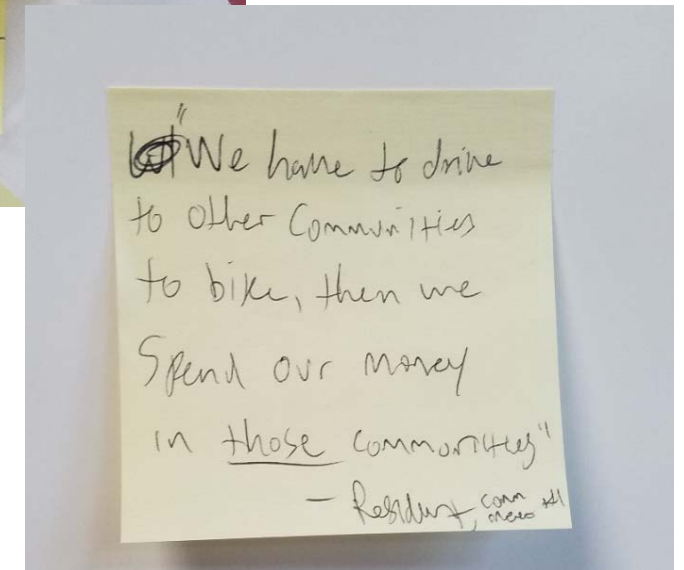 "We have to drive
to other Communities
to bike, then we
Spend our money
in those communities"
- Resident, comm
#1